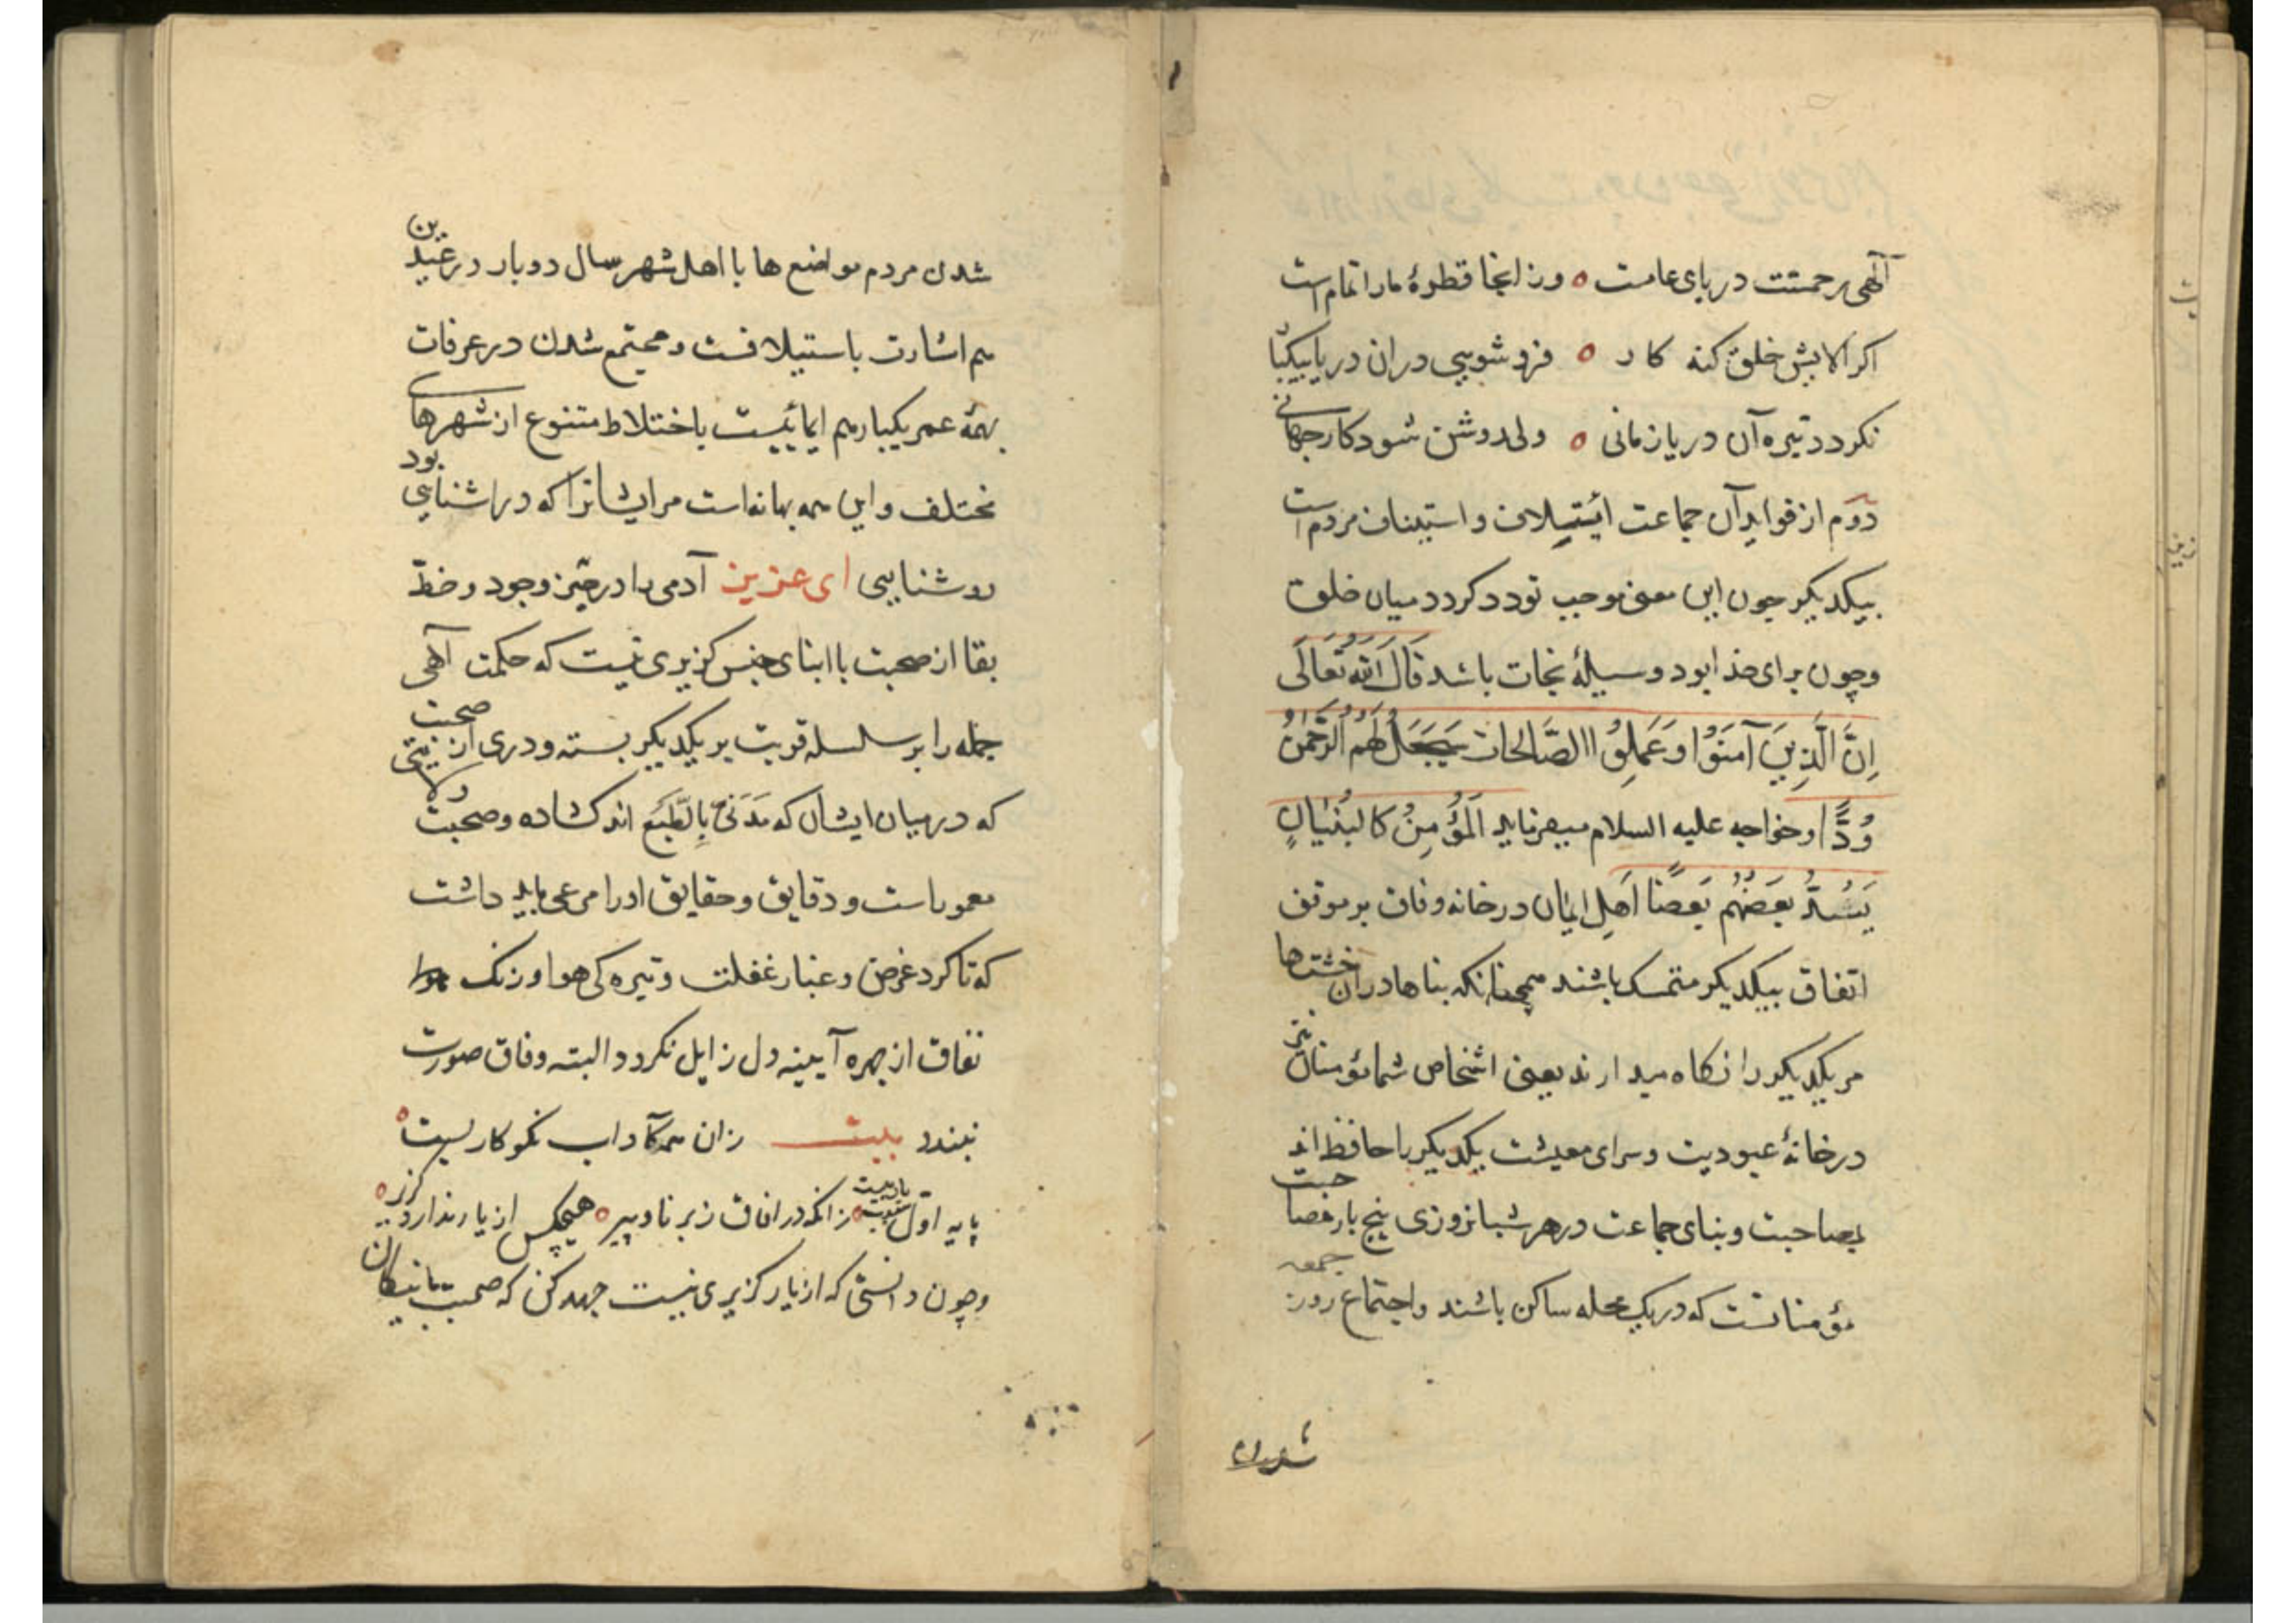 آلهی رحمتت دریای عامست ۵ وز اینجا قطرهٔ مارا تمام است
اکر الایش خلق کنه کار ۵ فرو شویی دران دریا بیکبار
نکردد تیره آن دریا زمانی ۵ ولی روشن شود کار جهانی
دوم از فواید آن جماعت ائتیلاف و استیناف مردم است
بیکدیکر چون این معنی موجب تودد کردد میان خلق
وچون برای خدا بود وسیلهٔ نجات باشد قَالَ اللهُ تَعَالَی
اِنَّ الَّذِینَ آمَنُوا وَعَمِلُوا الصَّالِحَاتِ سَیَجْعَلُ لَهُمُ الرَّحْمٰنُ
وُدًّا وخواجه علیه السلام میفرماید اَلْمُؤْمِنُ کَالْبُنْیَانِ
یَشُدُّ بَعْضُهُمْ بَعْضًا اهل ایمان در خانه وفاق بر موقف
اتفاق بیکدیکر متمسک باشند همچنانکه بناها دران خشت‌ها
مر یکدیکر را نکاه میدارند یعنی اشخاص شما مؤمنان نیز
در خانهٔ عبودیت وسرای معیشت یکدیکر را حافظ اند
بمصاحبت وبنای جماعت در هر شبانروزی پنج بار خصا حبت
مؤمنانست که در یک محله ساکن باشند واجتماع روز جمعه
شدن مردم
شدن مردم مواضع ها با اهل شهر سال دوبار در عیدین
هم اشارت باستیلافست ومجتمع شدن در عرفات
بهمهٔ عمر یکبار هم ایمائیست باختلاط متنوع از شهرهای
مختلف واین همه بهانه است مر ایشانرا که در اشنایی بود
روشنایی ای عزیز آدمی را در حیز وجود وخطّ
بقا از صحبت با ابنای جنس کزیری نیست که حکمت آلهی
جمله را بر سلسله قربت بر یکدیکر بسته ودری از صحبت
که در میان ایشان که مَدَنیٌّ بِالطَّبْع اند کشاده وصحبت
معمور است ودقایق وحقایق اورا مرعی باید داشت
که تا کرد غرض وغبار غفلت وتیره کی هوا وزنک
نفاق از چهره آیینه دل زایل نکردد البته وفاق صورت
نبندد بیت زان همه آداب نکو کاریست ۵
پایه اول ۵ زانکه در افاق ز برنا وپیر ۵ هیچکس از یار ندارد کزیر ۵
وچون دانستی که از یار کزیری نیست جهد کن که صحبت با نیکان